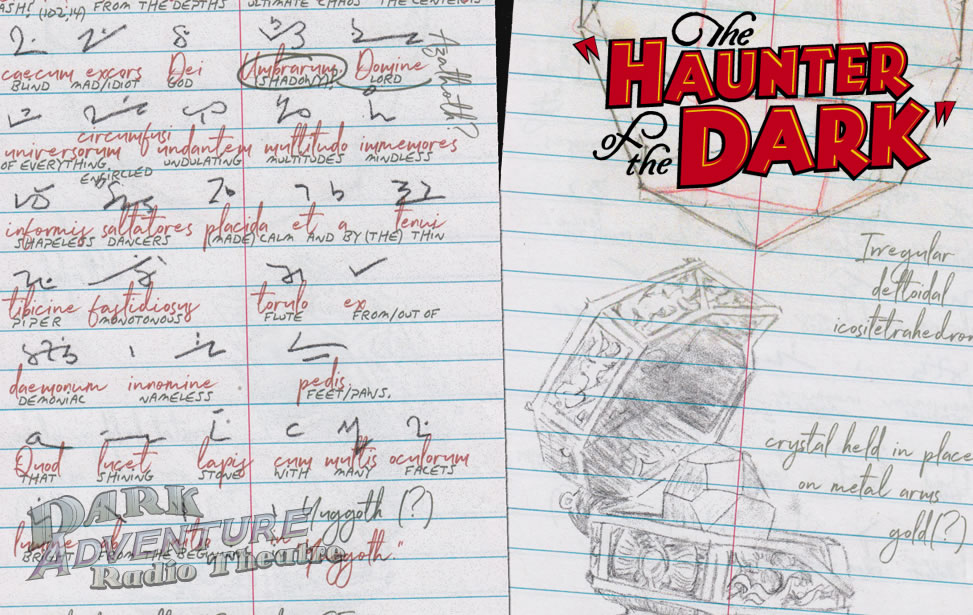 ASH! (102,14) FROM THE DEPTHS ULTIMATE CHAOS THE CENTER IS
caecum excors Dei Umbrarum, Domine
BLIND MAD/IDIOT GOD (SHADOW)? LORD
Azathoth?
circumfusi
universorum fundantem multitudo immemores
OF EVERYTHING UNDULATING MULTITUDES MINDLESS
ENCIRCLED
informis saltatores placida et a tenui
SHAPELESS DANCERS (MADE) CALM AND BY (THE) THIN
tibicine fastidiosus torulo ex
PIPER MONOTONOUS FLUTE FROM/OUT OF
daemonum innomine pedis
DEMONIAC NAMELESS FEET/PAWS.
Quod lucet lapis cum multis oculorum
THAT SHINING STONE WITH MANY FACETS
Yuggoth (?)
BRIGHT FROM THE BEGINNING Yuggoth."
DARK
ADVENTURE
Radio Theatre
The
"HAUNTER
of the DARK"
Irregular
deltoidal
icositetrahedron
crystal held in place
on metal arms
gold(?)